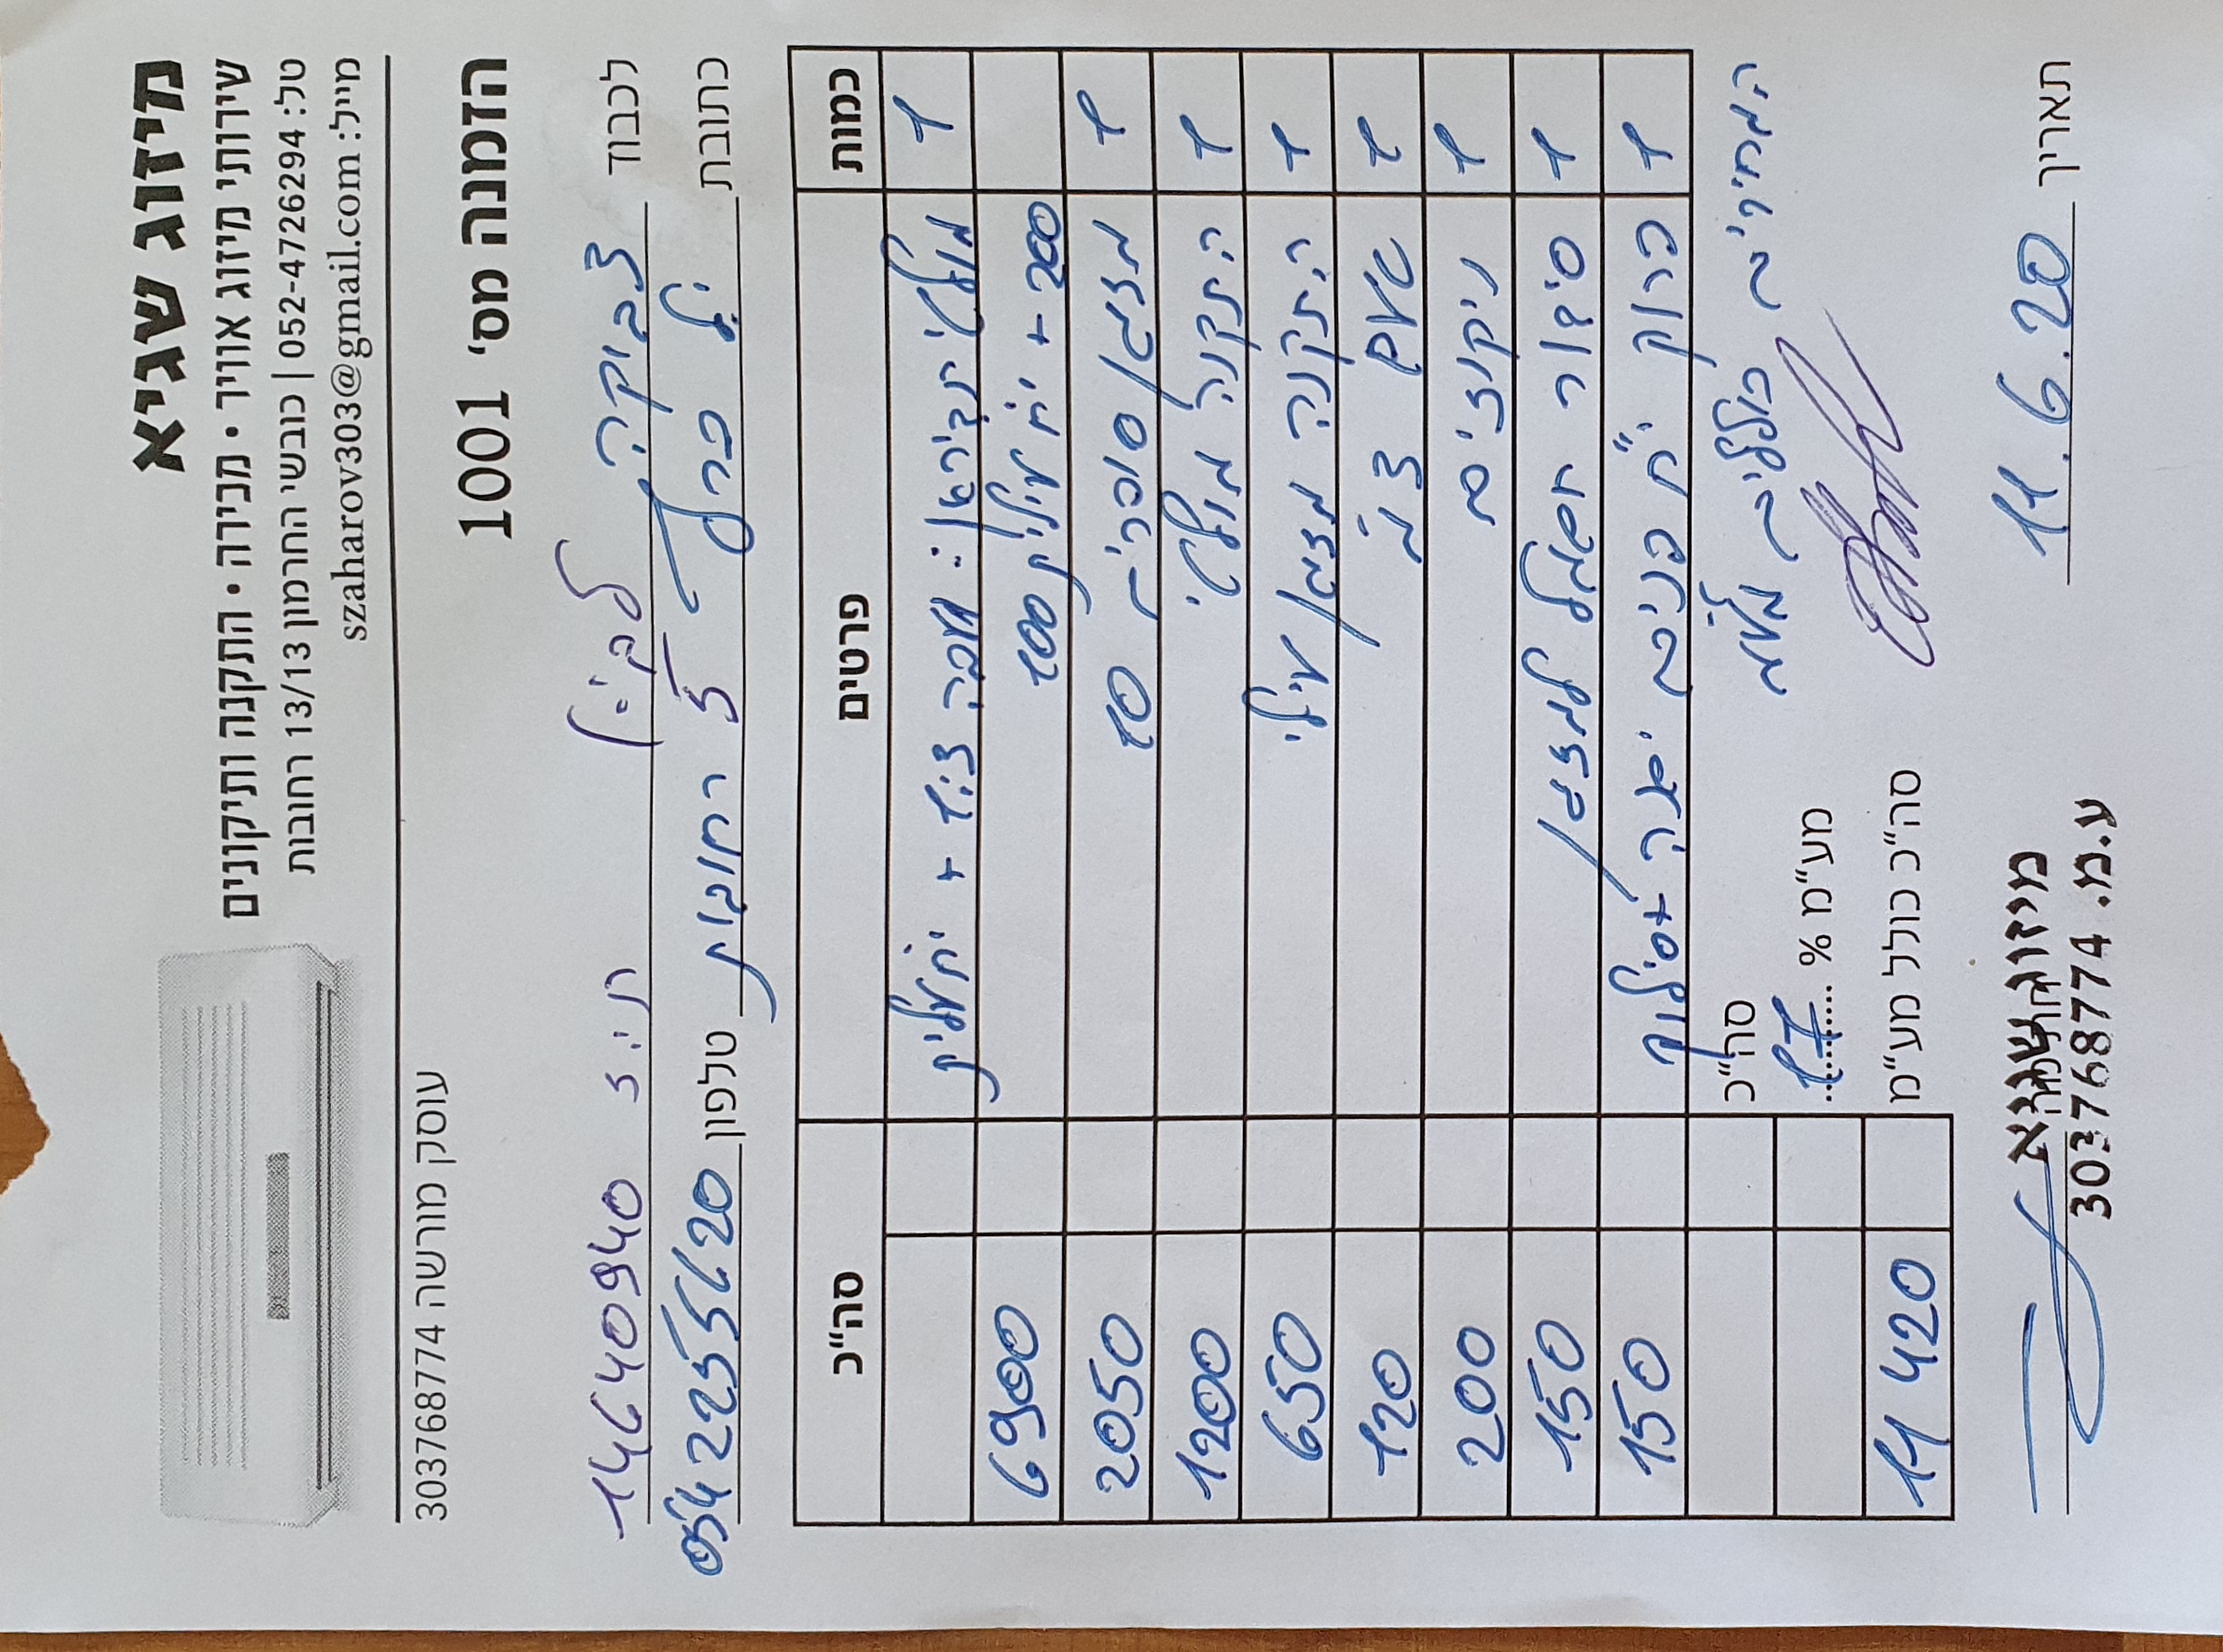 מיזוג שגיא
שירותי מיזוג אוויר • מכירה • התקנה ותיקונים
טל: 052-4726294 | כובשי החרמון 13/13 רחובות
מייל: szaharov303@gmail.com
עוסק מורשה 303768774
הזמנה מס׳ 1001
לכבוד צביקה ת.ז 14640940
כתובת פרל 5 רחובות טלפון 0542255620
כמות פרטים סה״כ
1 מולטי תדיראן: + יח עילית
200 + יח עילית 100 6900
1 מזגן סופרים 10 2050
1 התקנה מולטי 1200
1 התקנה מזגן עילי 650
1 120
1 ניקוזים 200
1 סידור חשמל למזגן 150
1 פרוק י״ח פנים ישנה + סילוק 150
המחירים כוללים מע״מ
סה״כ
מע״מ % 17
סה״כ כולל מע״מ 11420
תאריך 11.6.20
חתימה
מיזוג שגיא
ע.מ. 303768774